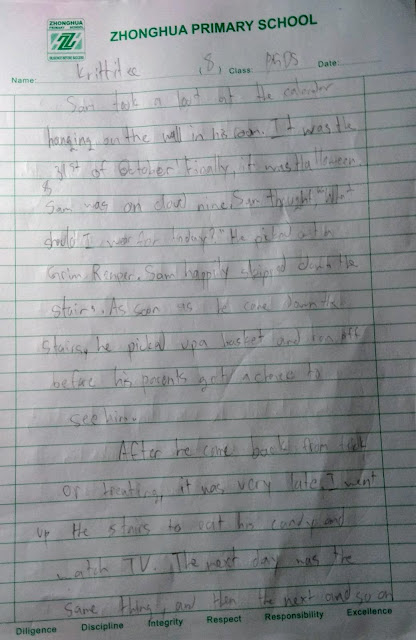 ZHONGHUA
PRIMARY SCHOOL
ZHONGHUA PRIMARY SCHOOL
Name: Krittitee (8) Class: Date:
Sam took a look at the calendar
hanging on the wall in his room. It was the
31st of October! Finally, it was Halloween.
Sam was on cloud nine. Sam thought "What
should I wear for today?" He picked out
Grim Reaper. Sam happily skipped down the
stairs. As soon as he came down the
stairs, he picked up a basket and ran off
before his parents got a chance to
see him.
After he came back from trick
or treating, it was very late. I went
up the stairs to eat his candy and
watch TV. The next day was the
same thing, and then the next and so on
Diligence Discipline Integrity Respect Responsibility Excellence